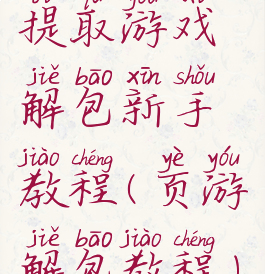 提取游戏
jiě bāo xīn shǒu
解包新手
jiào chéng yè yóu
教程(页游
jiě bāo jiào chéng
解包教程)